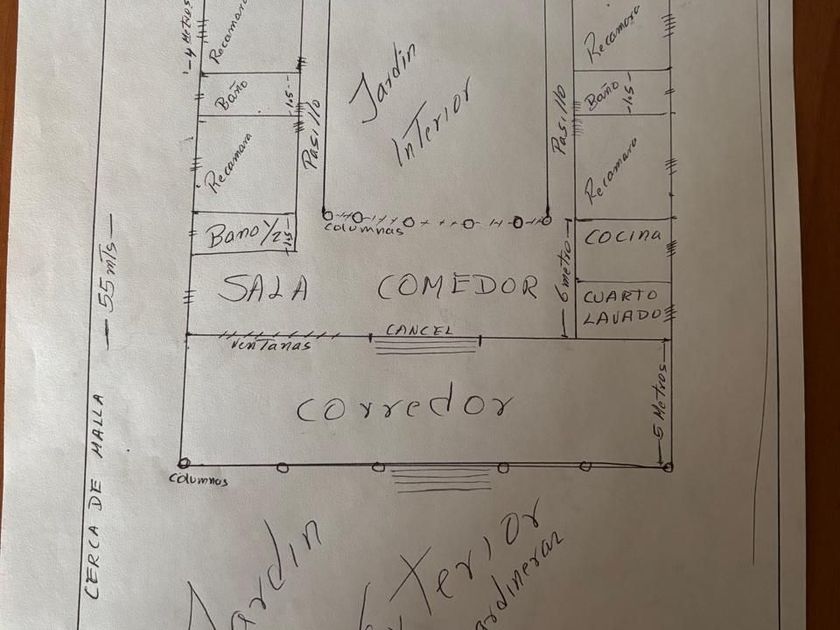 4 Metros
Recamara
Baño
1.5
Recamara
Baño 1/2
1.5
Pasillo
Jardin
Interior
Pasillo
Recamara
Baño
1.5
Recamara
COCINA
CUARTO
LAVADO
columnas
SALA
COMEDOR
6 metro
Ventanas
CANCEL
Corredor
5 Metros
columnas
CERCA DE MALLA
55 mTs
Jardin
Exterior